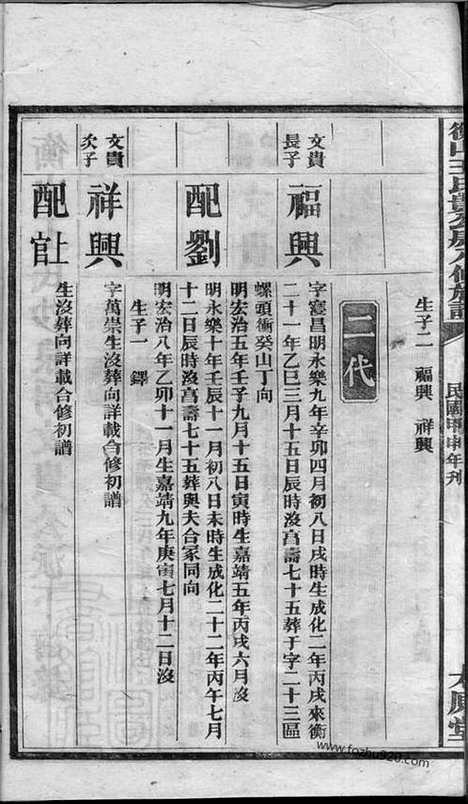 生子二 福興 祥興
二代
文貴長子
福興
字寔昌明永樂九年辛卯四月初八日戌時生成化二年丙戌來衡
二十一年乙巳三月十五日辰時沒享壽七十五葬于字二十三區
螺頭衝癸山丁向
配劉
明宏治五年壬子九月十五日寅時生嘉靖五年丙戌六月沒
明永樂十年壬辰十一月初八日未時生成化二十二年丙午七月
十二日辰時沒享壽七十五葬與夫合冢同向
明宏治八年乙卯十一月生嘉靖九年庚寅七月十二日沒
生子一 鐸
文貴次子
祥興
字萬崇生沒葬向詳載合修初譜
配官
生沒葬向詳載合修初譜
民國甲申年刊
www.fozhu920.com